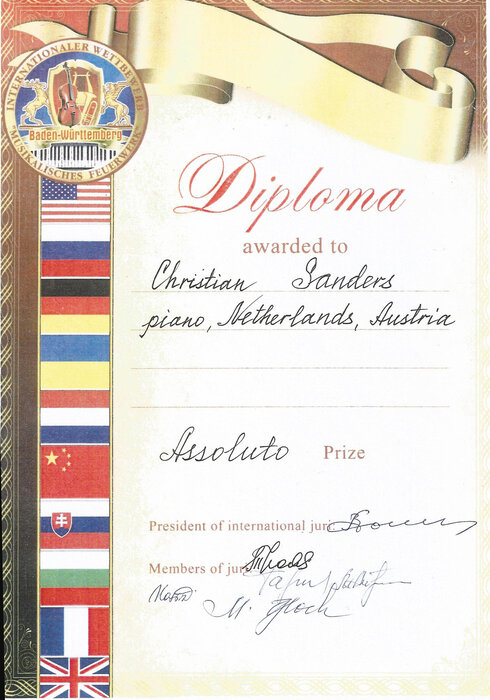 INTERNATIONALER WETTBEWERB
Baden-Württemberg
MUSIKALISCHES FEUERWERK
Diploma
awarded to
Christian Sanders
piano, Netherlands, Austria
Assoluto Prize
President of international jury
Members of jury